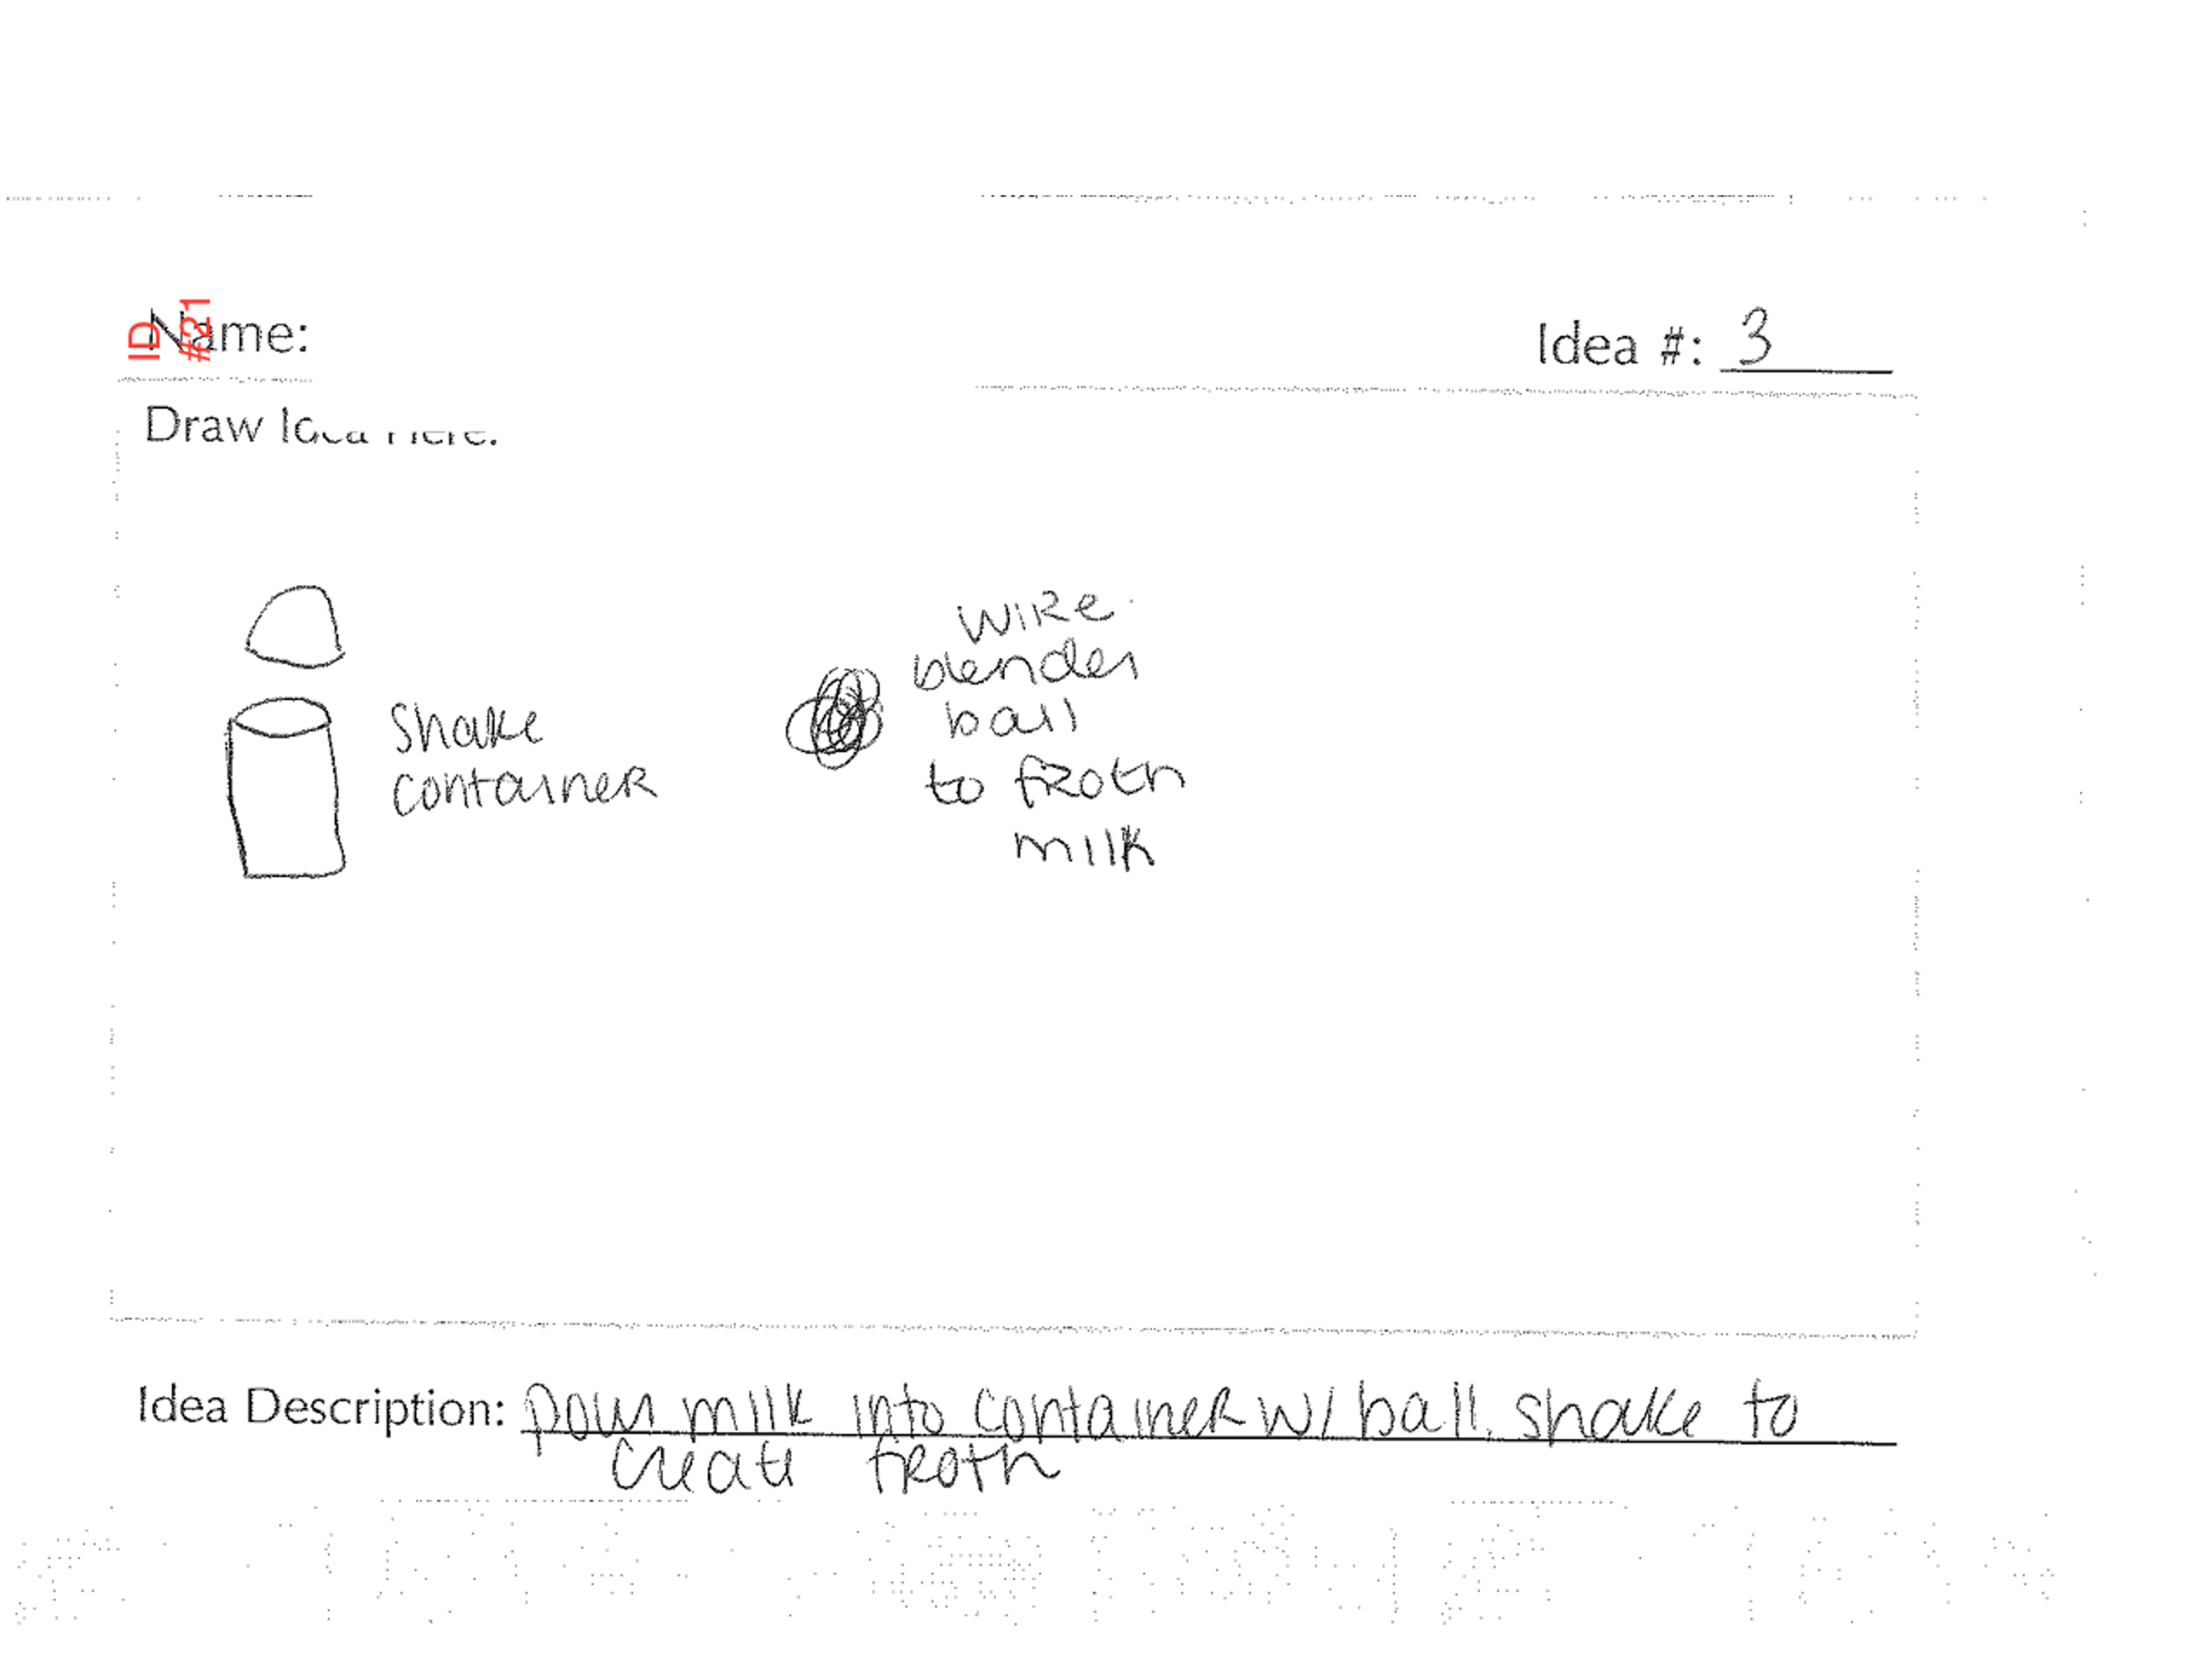 ID
#321
Name:
Idea #: 3
Draw Idea Here:
Shake
container
wire
blender
ball
to froth
milk
Idea Description: pour milk into container w/ ball. shake to
create froth